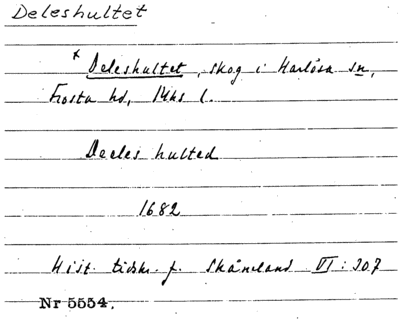 Deleshultet
x Deleshultet, skog i Harlösa sn,
Frosta hd, Mhs l.
Deeles hulted
1682
Hist. tidskr. f. Skåneland VI: 307
Nr 5554.